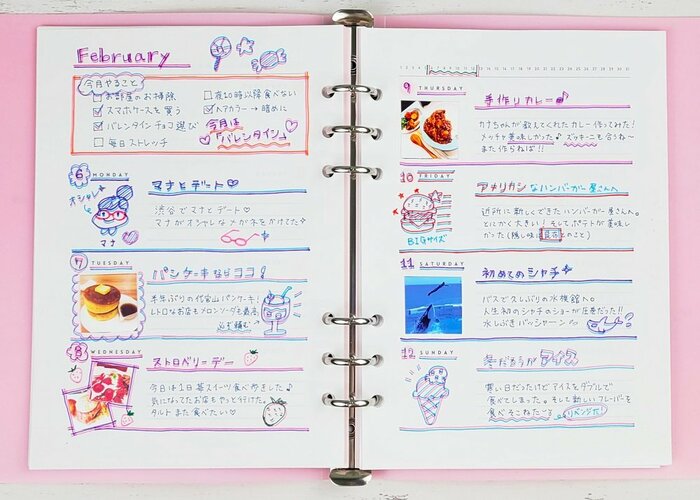 February
今月やること
お部屋のお掃除
スマホケースを買う
バレンタインチョコ選び
毎日ストレッチ
夜10時以降食べない
ヘアカラー→暗めに
今月は
「バレンタイン」
6 MONDAY
オシャレ
マナ♡
マナとデート♡
渋谷でマナとデート♡
マナがオシャレなメガネをかけてた
7 TUESDAY
パンケーキなココ!
半年ぶりの代官山パンケーキ♪
レトロなお店もメロンソーダも最高
必ず頼む
8 WEDNESDAY
ストロベリーデー
今日は1日苺スイーツ食べ歩きした♪
気になってたお店もやっと行けた。
タルトまた食べたい♡
9 THURSDAY
手作りカレー♪
カナちゃんが教えてくれたカレー作ってみた!
メッチャ美味しかった♪ズッキーニも合うね〜
また作らねば!!
10 FRIDAY
BIGサイズ
アメリカンなハンバーガー屋さんへ
近所に新しくできたハンバーガー屋さんへ。
とにかく大きい!そしてポテトが美味し
かった(隠し味は昆布とのこと)
11 SATURDAY
初めてのシャチ
パスで久しぶりの水族館へ。
人生初のシャチのショーが圧巻だった!!
水しぶきバッシャーン〜
12 SUNDAY
冬だろうがアイス
寒い日だったけどアイスをダブルで
食べてしまった。そして新しいフレーバーを
食べそこねたごる リベンジだ!